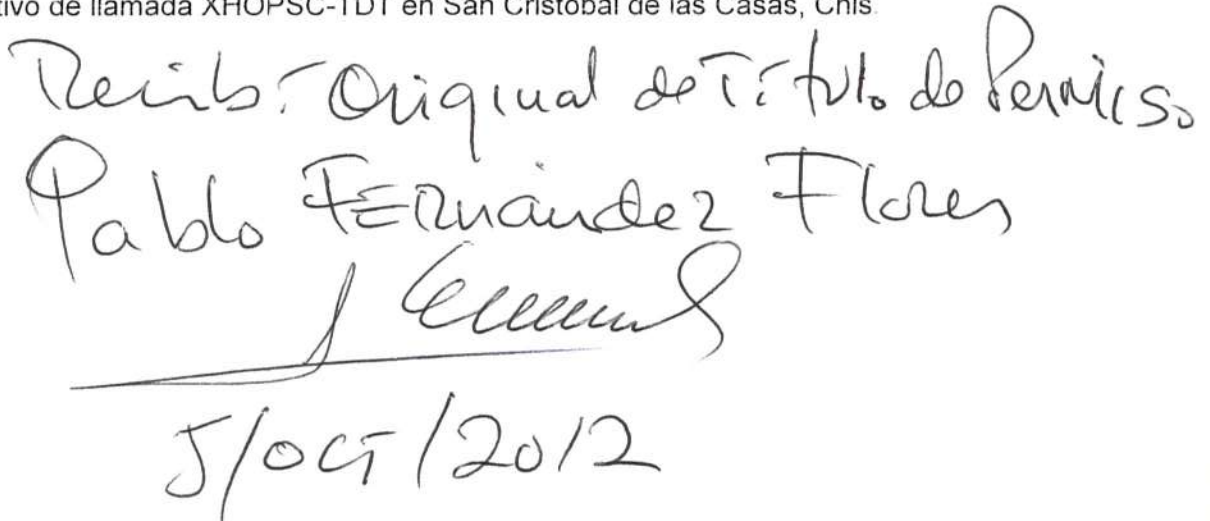 tivo de llamada XHOPSC-TDT en San Cristóbal de las Casas, Chis.
Recibí Original de Título de Permiso
Pablo FERnández Flores
5/OCT/2012